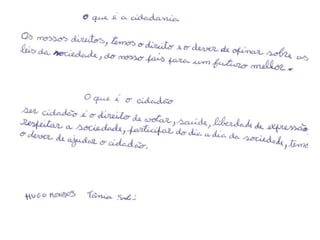 O que é a cidadania
Os nossos direitos, temos o direito e o dever de opinar sobre as
leis da sociedade, do nosso país para um futuro melhor.
O que é o cidadão
ser cidadão é o direito de votar, saúde, liberdade de expressão
respeitar a sociedade, participar do dia a dia da sociedade, temos
o dever de ajudar o cidadão.
HUGO Tânia